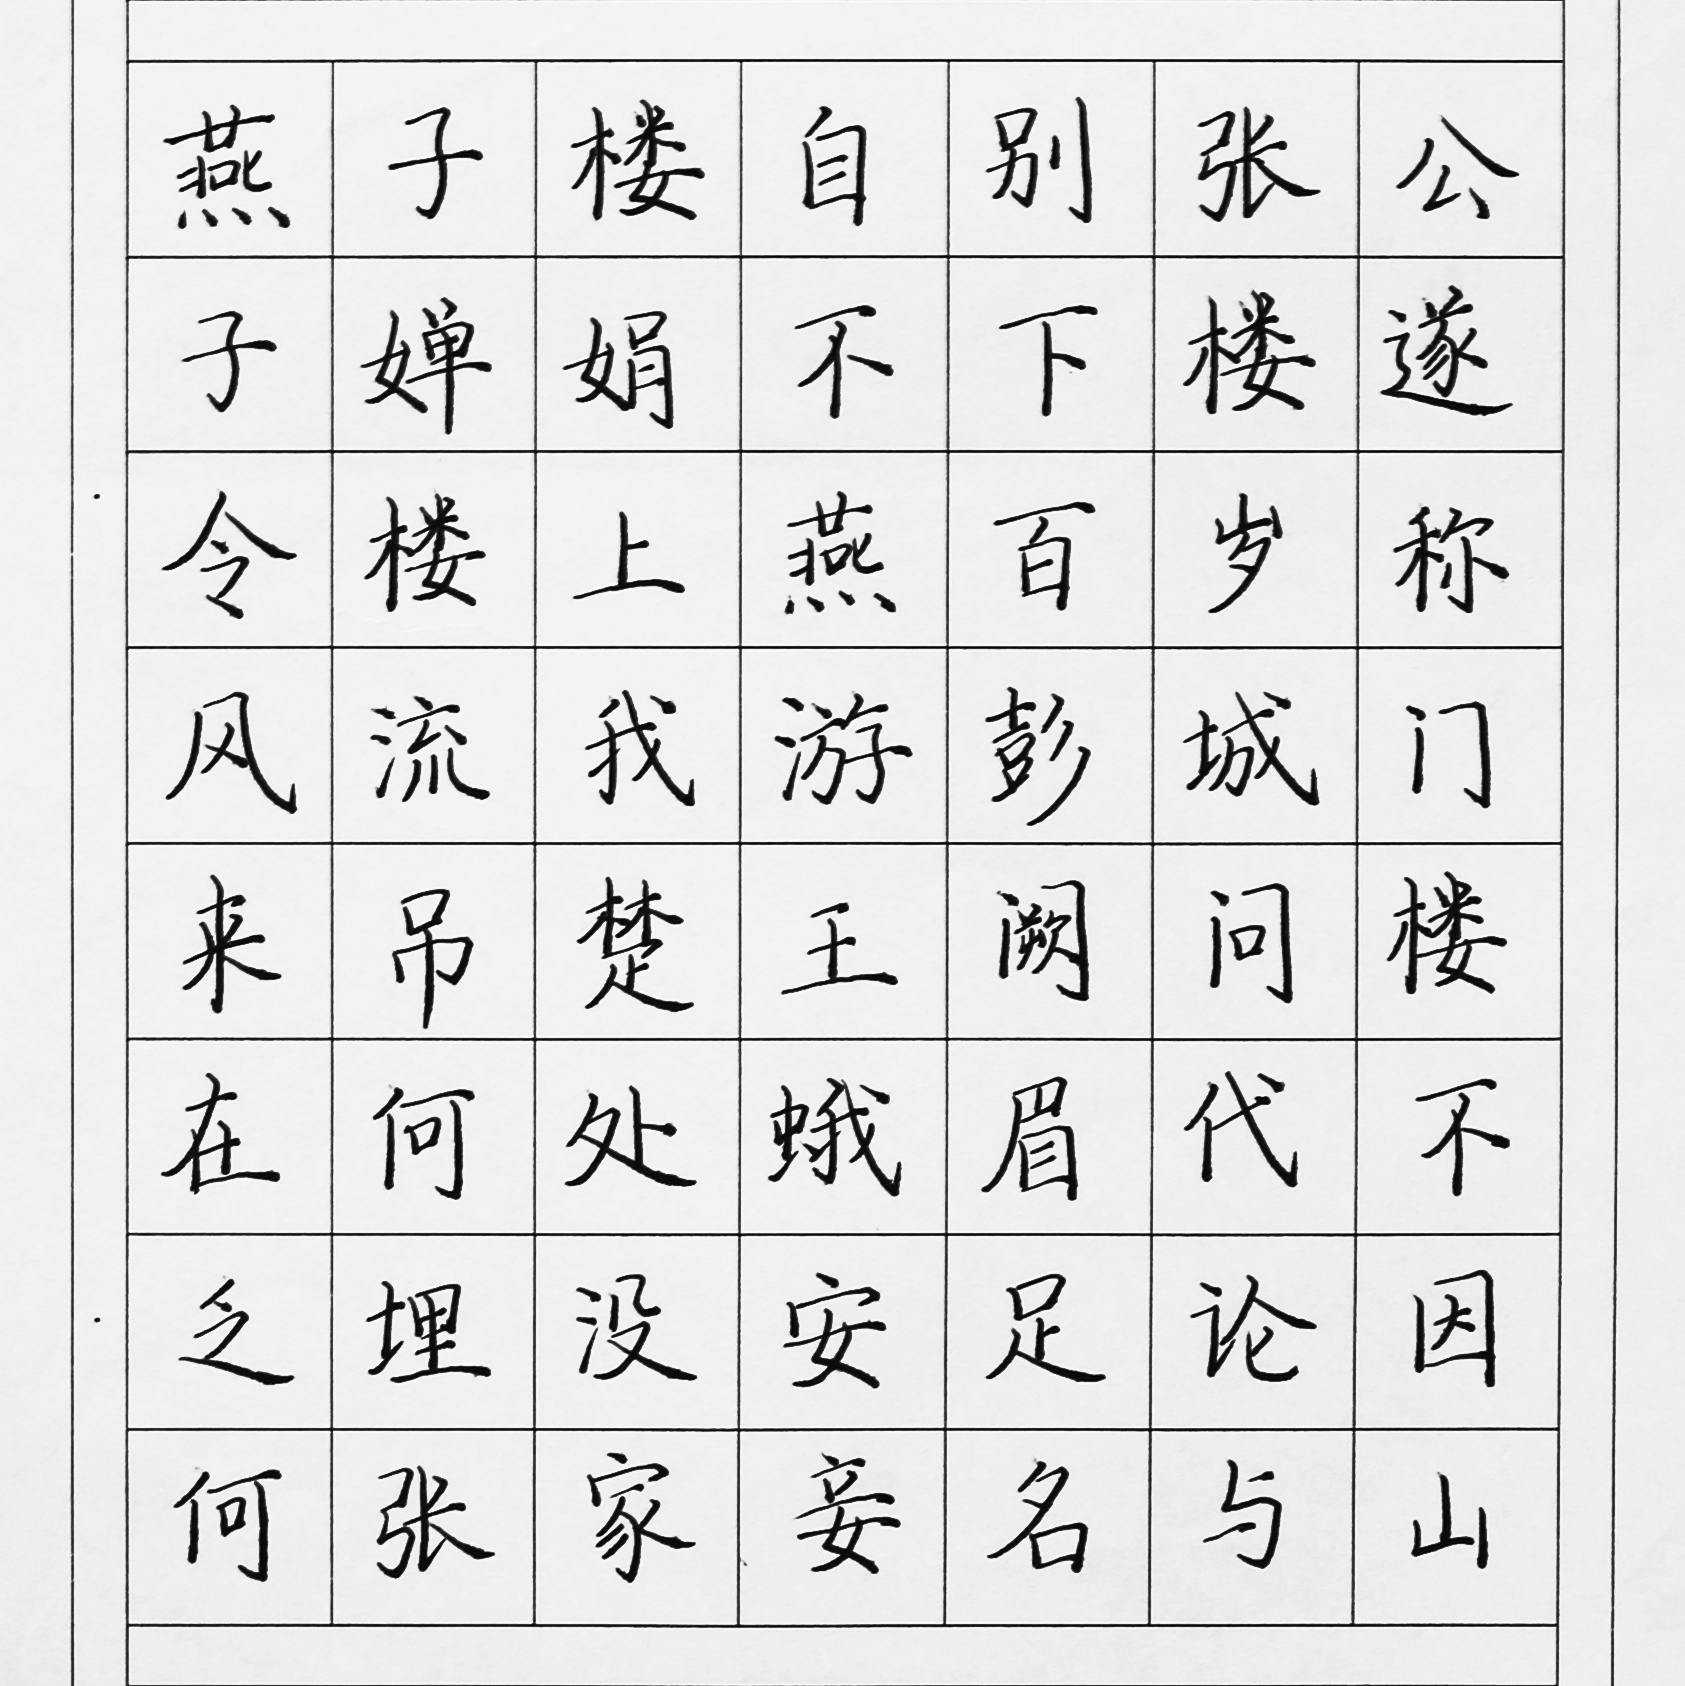 燕子楼自别张公
子婵娟不下楼遂
令楼上燕百岁称
风流我游彭城门
来吊楚王阙问楼
在何处蛾眉代不
乏埋没安足论因
何张家妾名与山